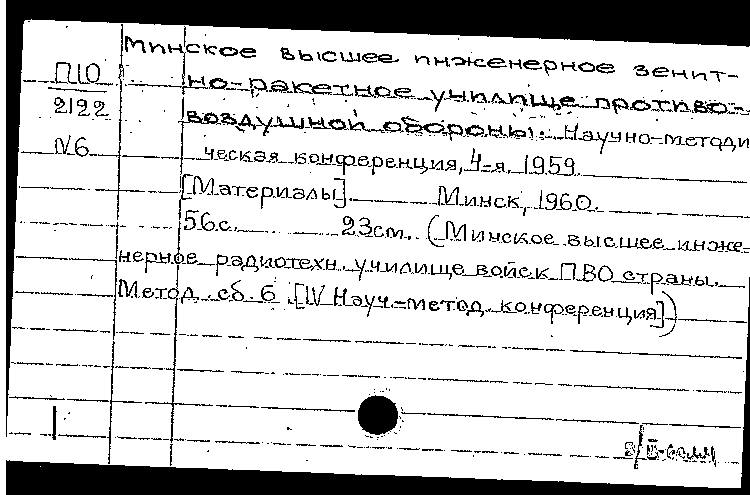 Минское высшее инженерное зенит-
П10
но-ракетное училище противо-
2122
воздушной обороны. Научно-методи
N6
ческая конференция, 4-я, 1959.
[Материалы]. Минск, 1960.
56с. 23см. (Минское высшее инже-
нерное радиотехн. училище войск ПВО страны.
Метод. сб. 6 [IV Науч.-метод. конференция])